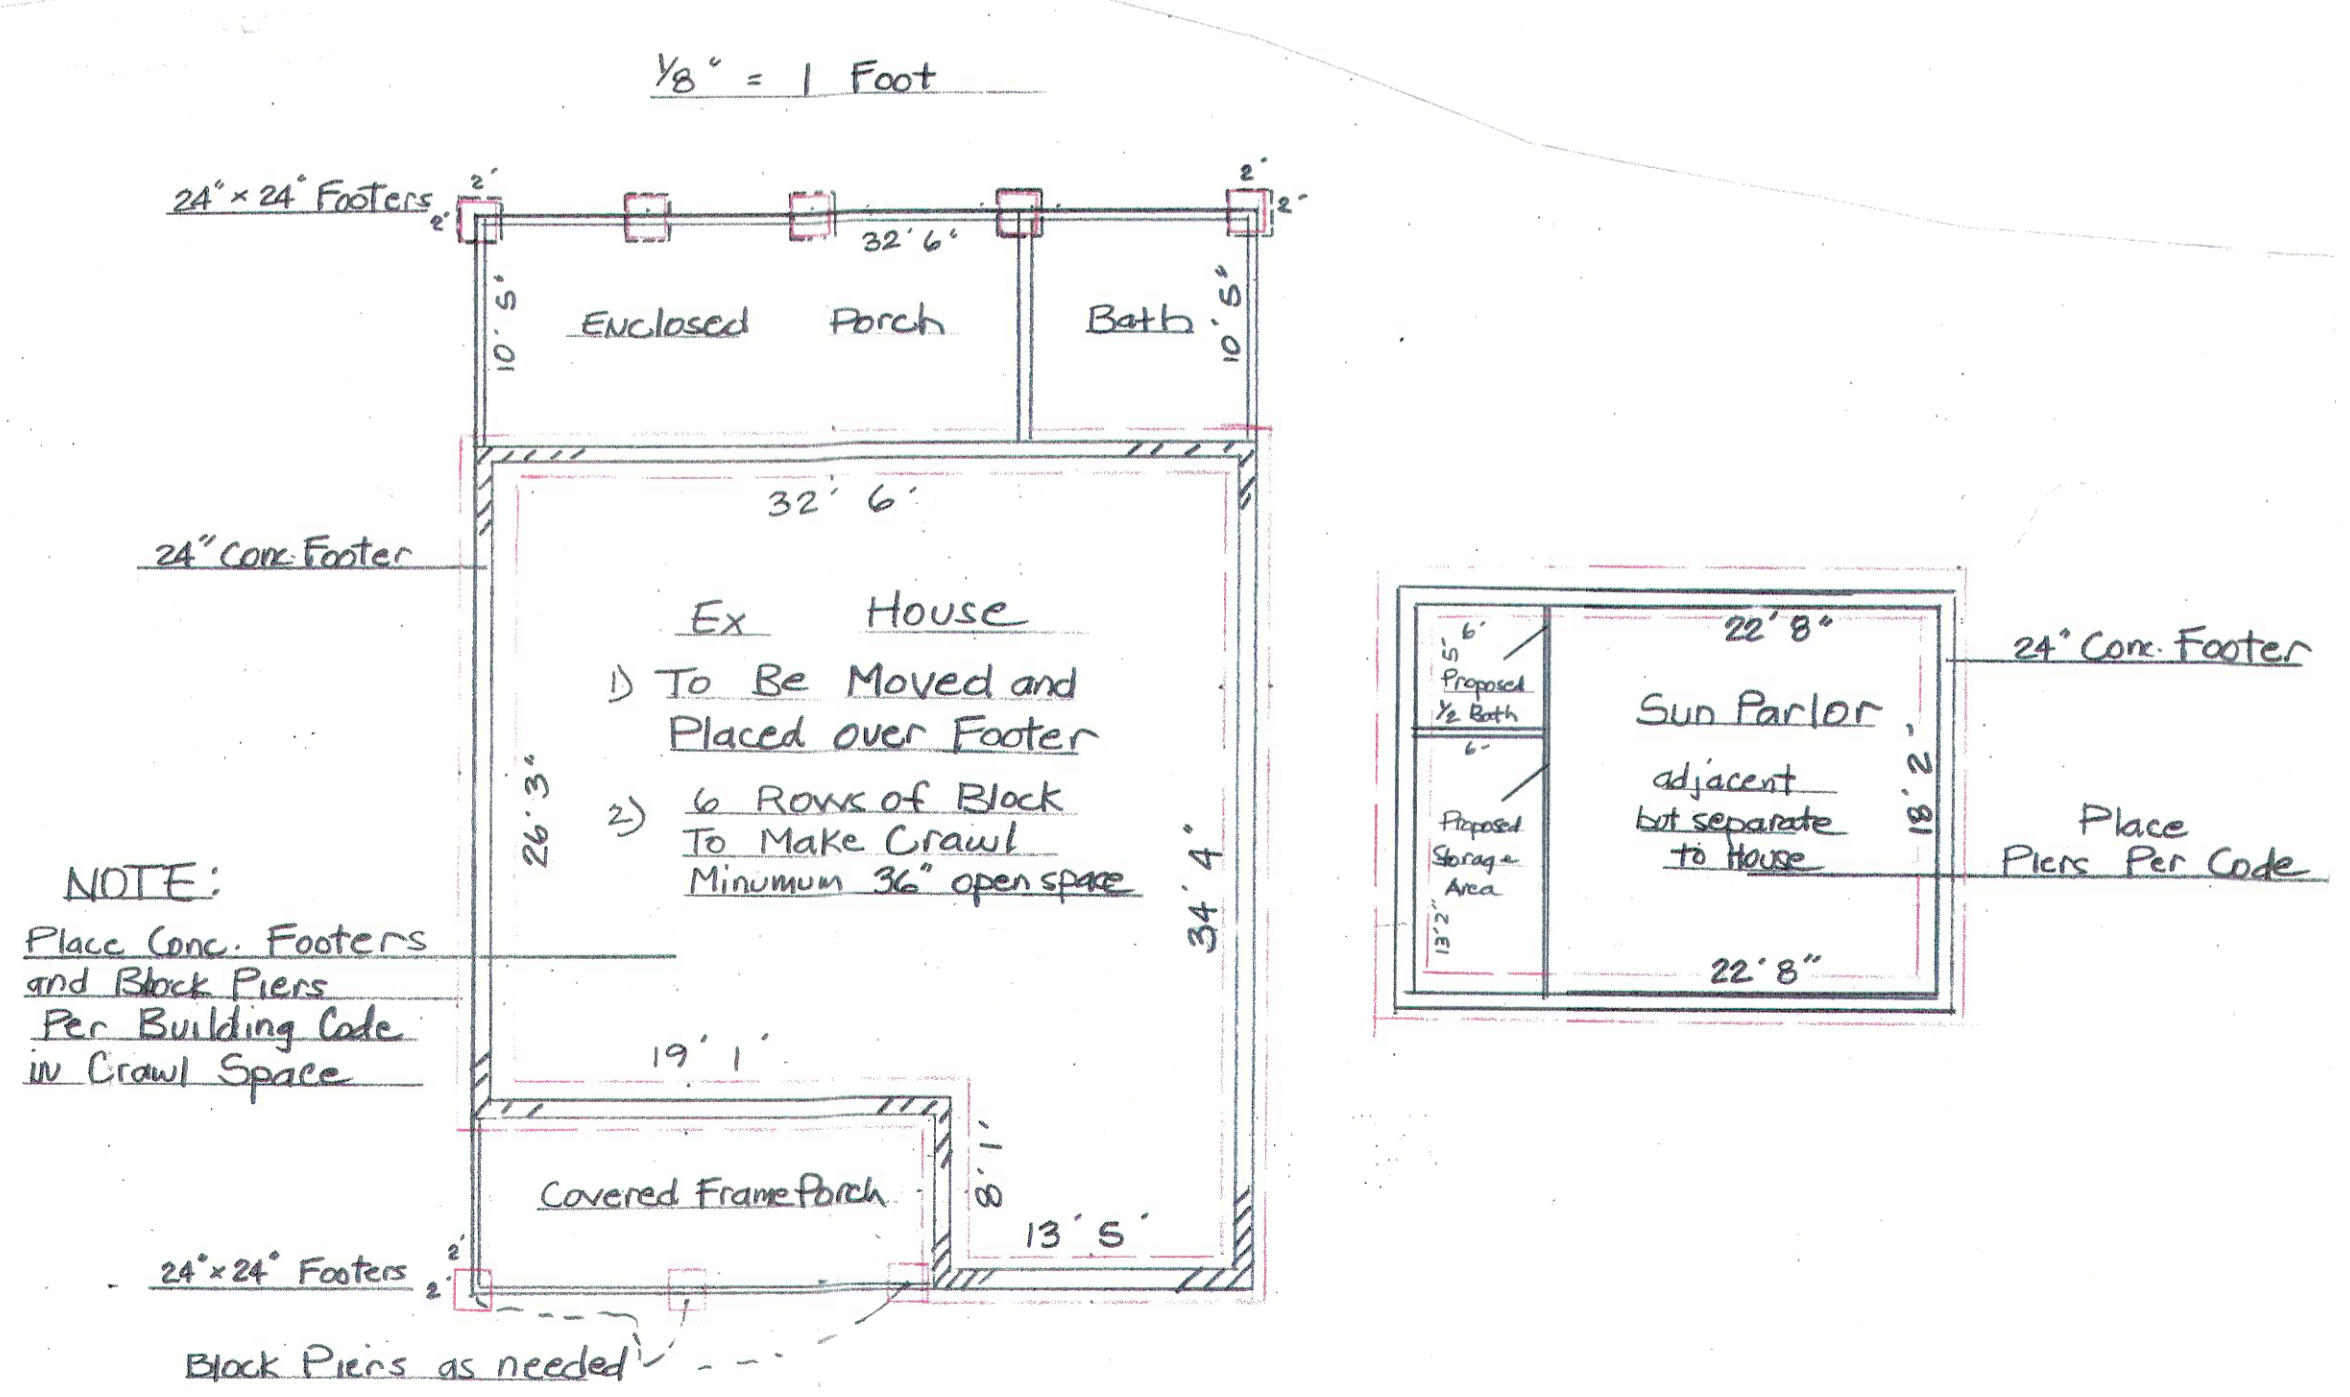 1/8" = 1 Foot
24" x 24" Footers
2'
2'
2'
2'
32' 6"
10' 5"
Enclosed Porch
Bath
10' 5"
32' 6'
24" Conc. Footer
Ex House
1) To Be Moved and
Placed over Footer
2) 6 Rows of Block
To Make Crawl
Minumum 36" open space
26' 3"
34' 4"
NOTE:
Place Conc. Footers
and Block Piers
Per Building Code
in Crawl Space
19' 1'
8' 1'
Covered Frame Porch
13' 5'
24" x 24" Footers
2'
2'
Block Piers as needed
6'
5'
Proposed
1/2 Bath
6'
Proposed
Storage
Area
13' 2"
22' 8"
Sun Parlor
adjacent
but separate
to House
18' 2'
22' 8"
24" Conc. Footer
Place
Piers Per Code